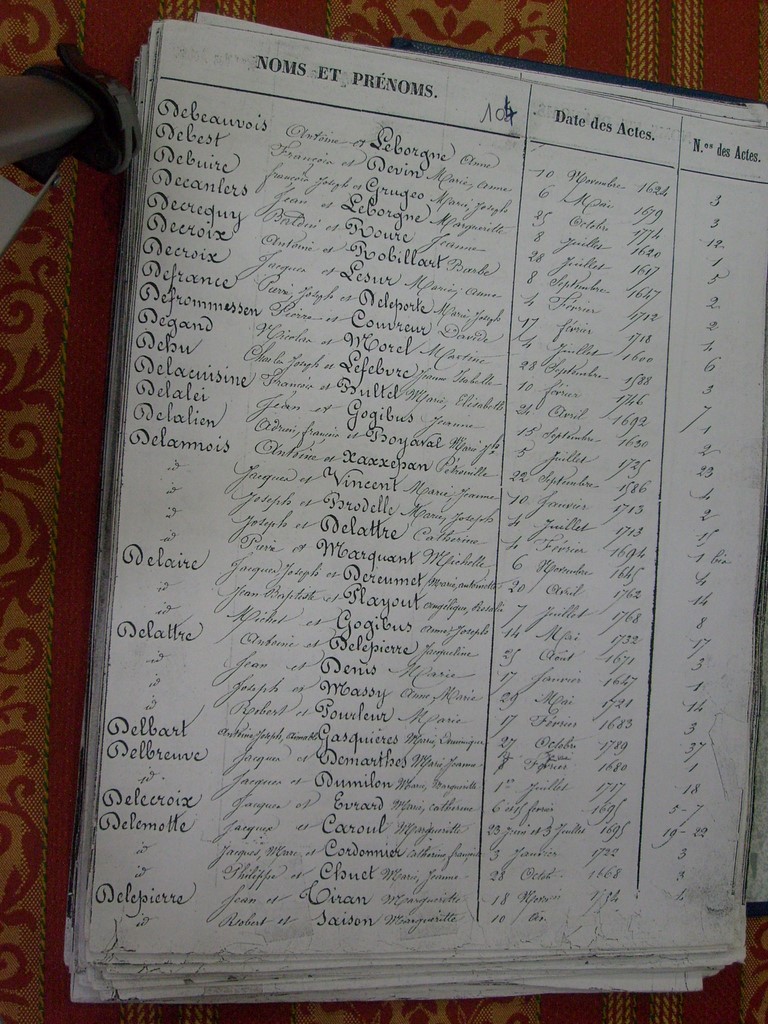 NOMS ET PRÉNOMS. 104 Date des Actes. N.os des Actes.
Debeauvois Antoine et Leborgne Anne 10 Novembre 1624 3
Debest François et Devin Marie, Anne 6 Mai 1679 3
Debuire françois Joseph et Grugeo Marie Joseph 25 Octobre 1774 12
Decanlers Jean et Leborgne Marguerite 8 Juillet 1620 1
Decrequy et Roure Jeanne 28 Juillet 1617 5
Decroix Antoine et Robillart Barbe 8 Septembre 1647 2
Decroix Jacques et Lesur Marie, Anne 4 Février 1712 2
Defrance Pierre, Joseph et Deleporte Marie Joseph 17 février 1718 4
Defrommessen Pierre et Couvreur Davide 4 Juillet 1600 6
Degand Nicolas et Morel Martine 28 Septembre 1588 3
Dehu Charles Joseph et Lefebvre Jeanne Isabelle 10 février 1746 7
Delacuisine François et Bultel Marie, Elisabeth 24 Avril 1692 1
Delalei Jean et Gogibus Jeanne 15 Septembre 1630 2
Delalien Adrien, françois et Boyaval Marie Jh 5 Juillet 1725 23
Delannois Antoine et Xaxxepan Petronille 22 Septembre 1586 4
id Jacques et Vincent Marie, Jeanne 10 Janvier 1713 2
id Joseph et Brodelle Marie, Joseph 4 Juillet 1713 15
id Joseph et Delattre Catherine 4 Février 1694 1 bis
id Pierre et Marquant Michelle 6 Novembre 1645 4
Delaire Jacques Joseph et Dereumet Marie, antoinette 20 Avril 1762 14
id Jean Baptiste et Playout angélique, Rosalie 7 Juillet 1768 8
id Michel et Gogibus Anne Joseph 14 Mai 1732 17
Delattre Antoine et Delepierre Jacqueline 25 Août 1671 3
id Jean et Denis Marie 17 Janvier 1647 1
id Joseph et Massy Anne, Marie 29 Mai 1721 14
id Robert et Pourleur Marie 17 Février 1683 3
Delbart Antoine, Joseph, Aimable Gasquières Marie, Dominique 27 Octobre 1789 37
Delbreuve Jacques et Demarthes Marie Jeanne 8 Février 1680 1
id Jacques et Dumilon Marie, Marguerite 1er Juillet 1717 18
Delecroix Jacques et Evrard Marie, catherine 6 et 5 février 1695 5-7
Delemotte Jacques et Caroul Marguerite 23 Juin et 3 Juillet 1695 19-22
id Jacques, Marc et Cordonnier catherine, françoise 3 Janvier 1722 3
id Philippe et Chuet Marie, Jeanne 28 Octob 1668 3
Delepierre Jean et Tiran Marguerite 18 4
id Robert et Saison Marguerite 10